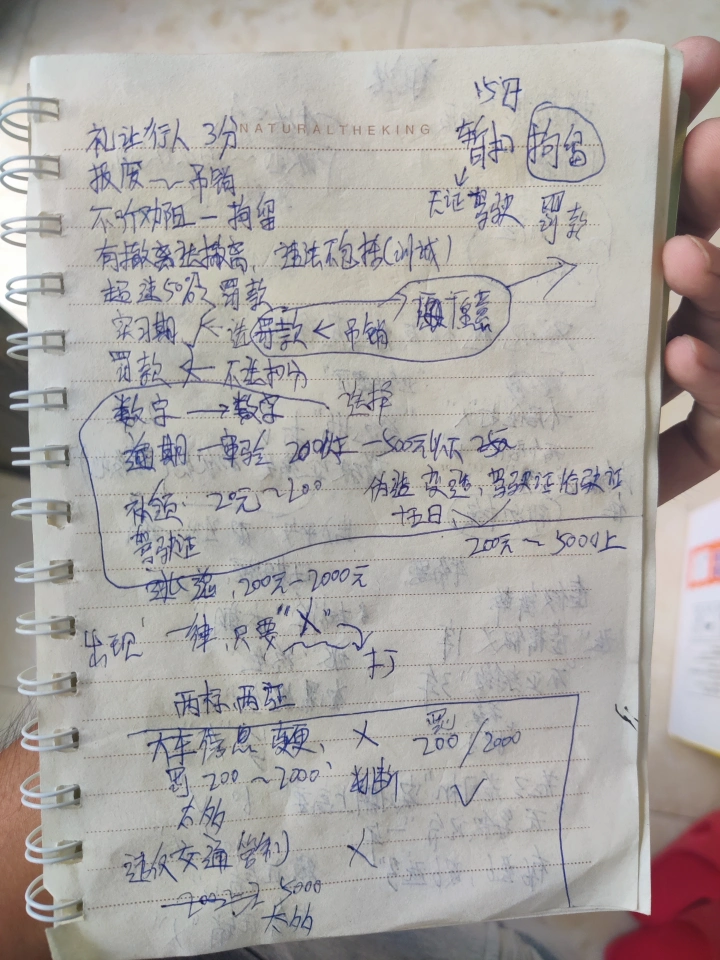 NATURALTHEKING
15日
暂扣 拘留
无证驾驶 罚款
礼让行人 3分
报废~吊销
不听劝阻一拘留
有撤离法撤离,违法不包括(训诫)
超速50% 罚款
实习期 选罚款 < 吊销
罚款 ← 不选扣分
数字 → 数字 选择
逾期一审验 200以上 一500元以下
补领:20元~200
伪造变造,驾驶证行驶证,
十五日、
驾驶证
200元~500以上
,200元~2000元
出现 一律,只要"X"
打
两标,两证
大车信息变更、 X 罚 200/2000
罚 200~2000 判断 √
太多
违反交通管制 X
5000
太多